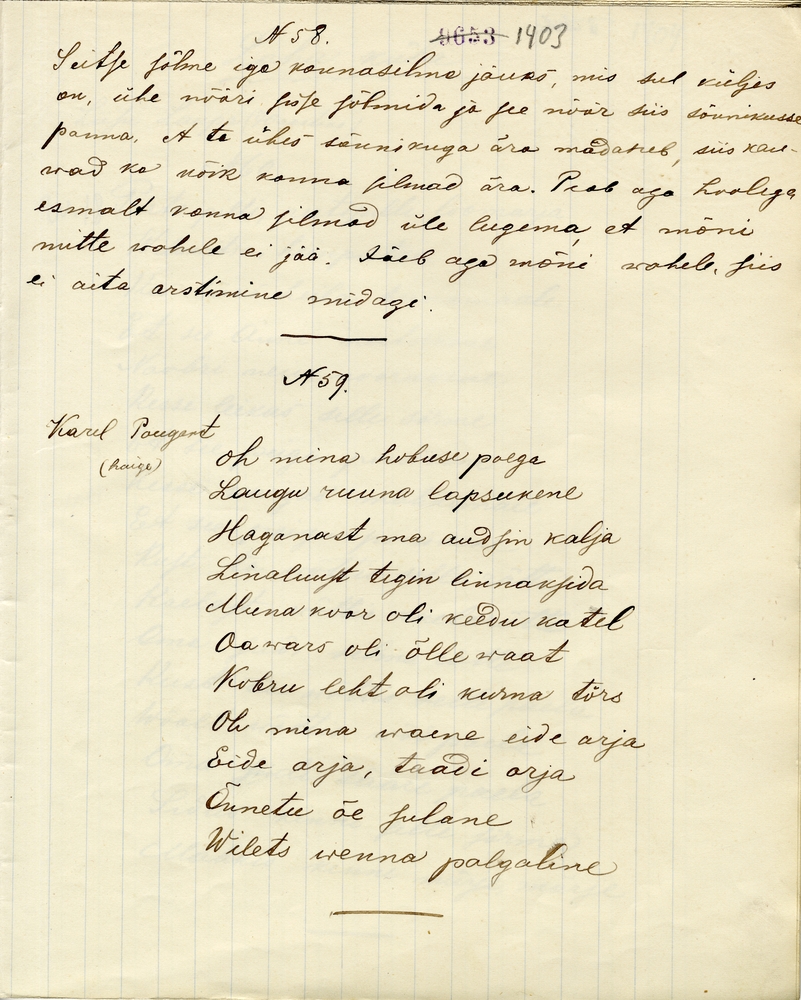 N 58.
9653 1403
Seitse sõlme iga konnasilma jäuks, mis sul küljes
on, ühe nööri sisse sõlmida ja see nöör siis sõnnikusse
panna. Et ta ühes sõnnikuga ära mädaneb, siis kau-
wad ka kõik konna silmad ära. Peab aga hoolega
esmalt konna silmad üle lugema, et mõni
mitte wahele ei jää. Jääb aga mõni wahele, siis
ei aita arstimine midagi.
N 59.
Karel
(haige)
Oh mina hobuse poega
Laugu ruuna lapsukene
Haganast ma audsin kalja
Linaluust tegin linnaksida
Muna koor oli keedu katel
Oa wars oli õlle waat
Kobru leht oli kurna tõrs
Oh mina waene eide orja
Eide orja, taadi orja
Õnnetu õe sulane
Wilets wenna palgaline